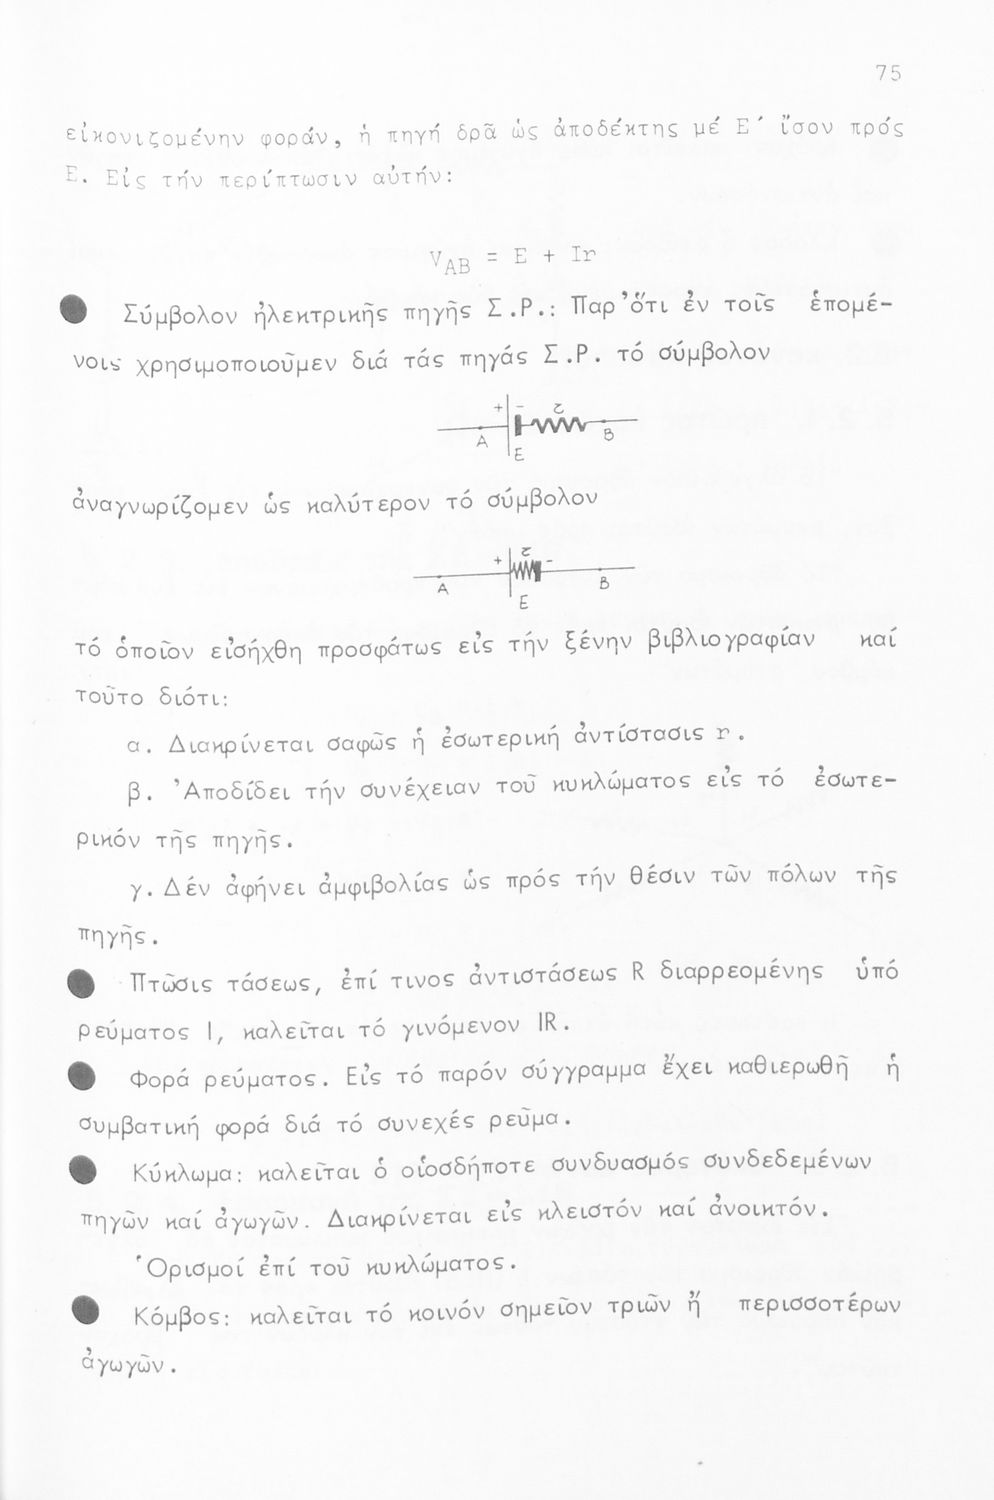 75
εἰκονιζομένην φοράν, ἡ πηγή δρᾶ ὡς ἀποδέκτης μέ Ε΄ ἴσον πρός
Ε. Εἰς τήν περίπτωσιν αὐτήν:
V_AB = E + Ir
● Σύμβολον ἠλεκτρικῆς πηγῆς Σ.Ρ.: Παρ᾽ὅτι ἐν τοῖς ἑπομέ-
νοις χρησιμοποιοῦμεν διά τάς πηγάς Σ.Ρ. τό σύμβολον
+ - r
A E B
ἀναγνωρίζομεν ὡς καλύτερον τό σύμβολον
+ r -
A E B
τό ὁποῖον εἰσήχθη προσφάτως εἰς τήν ξένην βιβλιογραφίαν καί
τοῦτο διότι:
α. Διακρίνεται σαφῶς ἡ ἐσωτερική ἀντίστασις r.
β. Ἀποδίδει τήν συνέχειαν τοῦ κυκλώματος εἰς τό ἐσωτε-
ρικόν τῆς πηγῆς.
γ. Δέν ἀφήνει ἀμφιβολίας ὡς πρός τήν θέσιν τῶν πόλων τῆς
πηγῆς.
● Πτῶσις τάσεως, ἐπί τινος ἀντιστάσεως R διαρρεομένης ὑπό
ρεύματος I, καλεῖται τό γινόμενον IR.
● Φορά ρεύματος. Εἰς τό παρόν σύγγραμμα ἔχει καθιερωθῆ ἡ
συμβατική φορά διά τό συνεχές ρεῦμα.
● Κύκλωμα: καλεῖται ὁ οἱοσδήποτε συνδυασμός συνδεδεμένων
πηγῶν καί ἀγωγῶν. Διακρίνεται εἰς κλειστόν καί ἀνοικτόν.
Ὁρισμοί ἐπί τοῦ κυκλώματος.
● Κόμβος: καλεῖται τό κοινόν σημεῖον τριῶν ἤ περισσοτέρων
ἀγωγῶν.